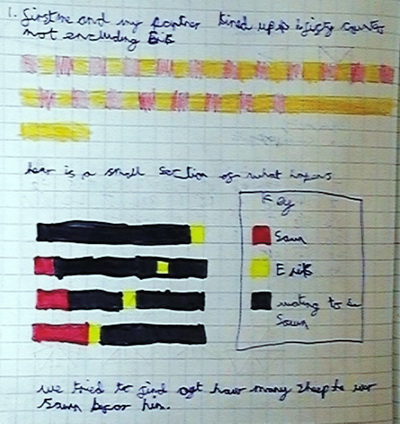 1. first me and my partner lined up fifty counters
not excluding Eric
hear is a small section of what hapens
Key
Sawn
Eric
wating to be
Sawn
we tried to find out how many sheep he wor
Sawn befor him.